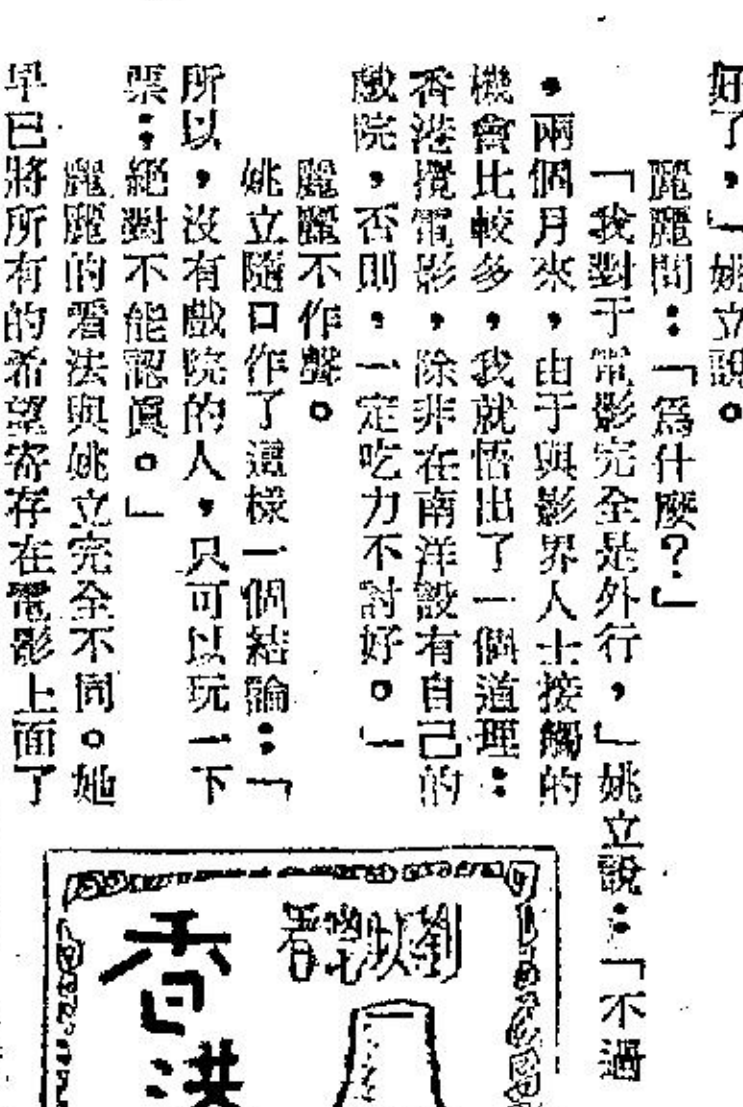 好了，」姚立說。
麗麗問：「爲什麼？」
「我對于電影完全是外行，」姚立說：「不過
，兩個月來，由于與影界人士接觸的
機會比較多，我就悟出了一個道理：
香港攪電影，除非在南洋設有自己的
戲院，否則，一定吃力不討好。」
麗麗不作聲。
姚立隨口作了這樣一個結論：「
所以，沒有戲院的人，只可以玩一下
票；絕對不能認眞。」
麗麗的看法與姚立完全不同。她
早已將所有的希望寄存在電影上面了
劉以鬯著
香港